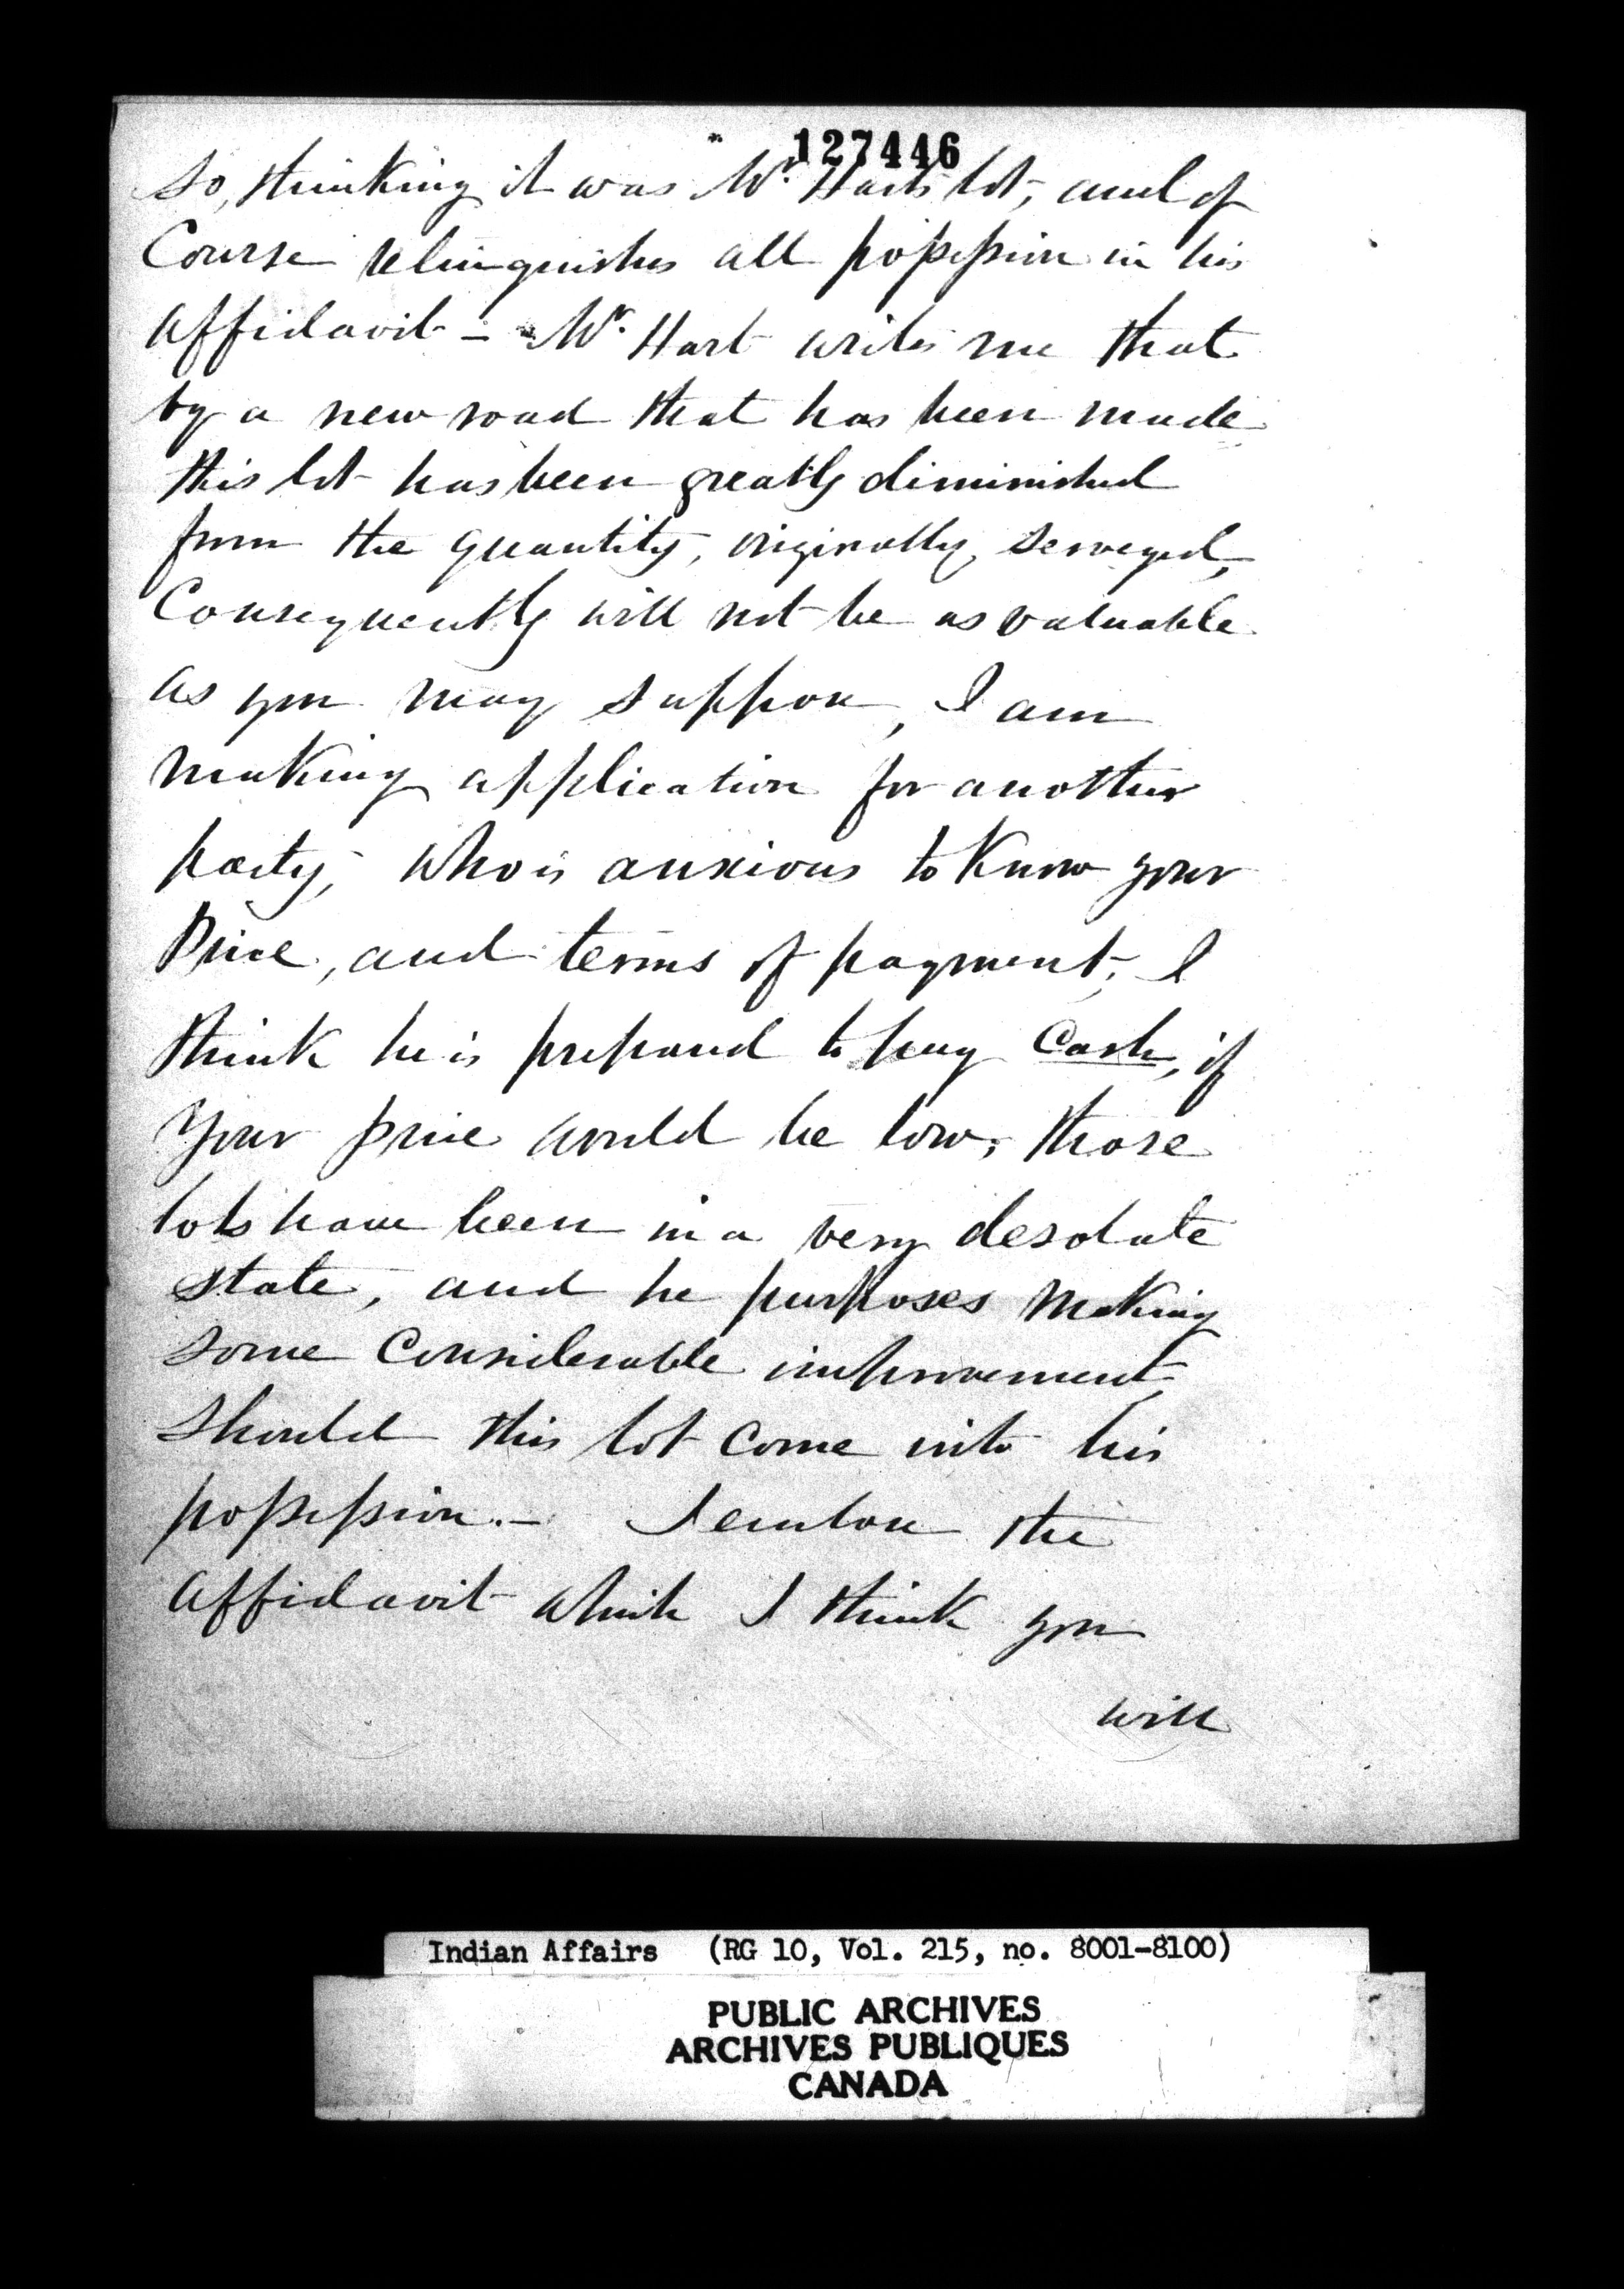 127446
So, thinking it was Mr. Harts lot, and of
Course relinquishes all possession in his
affidavit - Mr. Hart writes me that
by a new road that has been made
this lot has been greatly diminished
from the quantity, originally, serveyed,
Consequently will not be as valuable
as you may suppose, I am
making application for another
party, who is anxious to Know your
Price, and terms of payment, I
think he is prepared to pay Cash, if
Your price would be low, those
lots have been in a very desolate
state, and he purposes making
some Considerable improvement,
Should this lot come into his
possession. - I enclose the
affidavit which I think you
will
Indian Affairs (RG 10, Vol. 215, no. 8001-8100)
PUBLIC ARCHIVES
ARCHIVES PUBLIQUES
CANADA